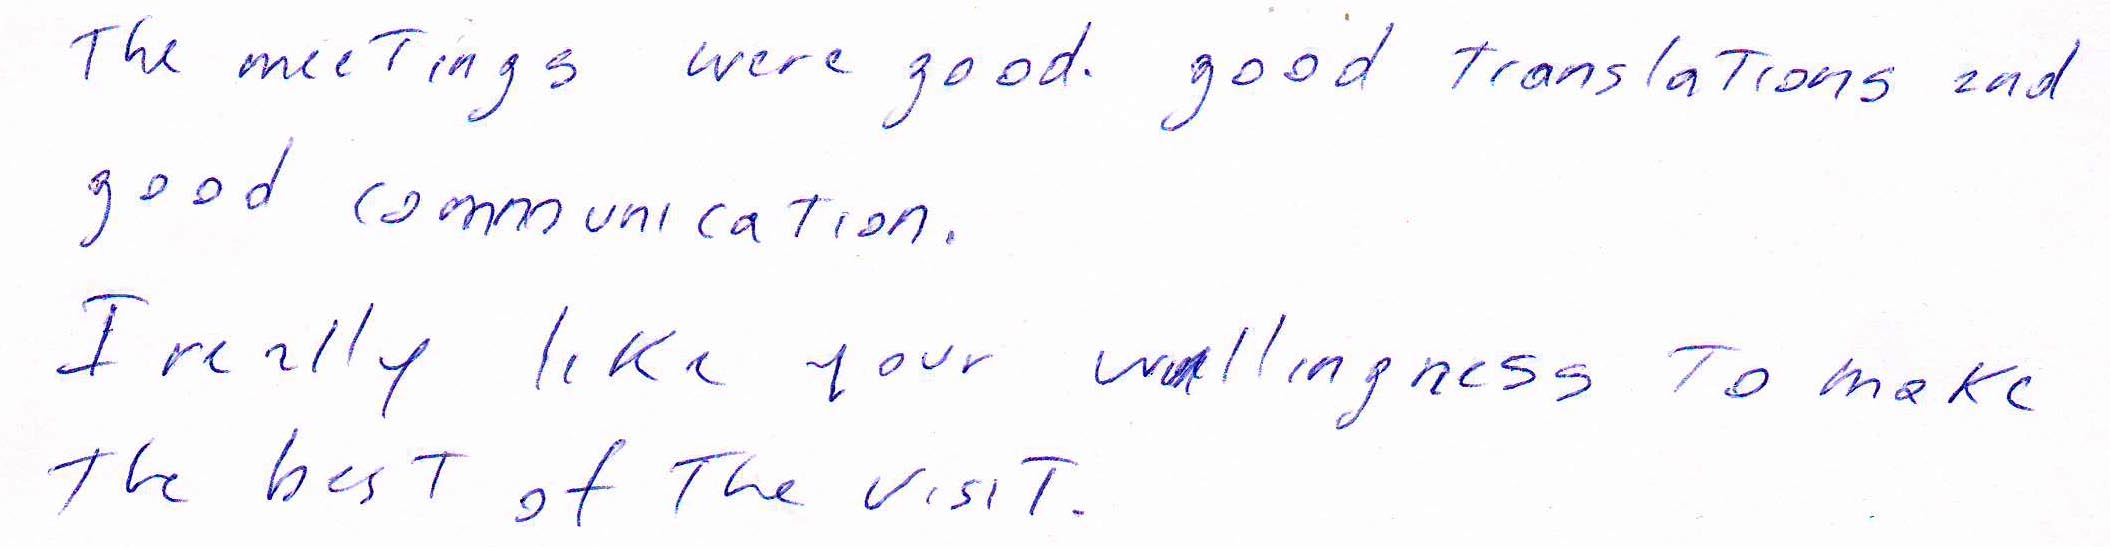 The meetings were good. good translations and
good communication.
I really like your willingness to make
the best of the visit.